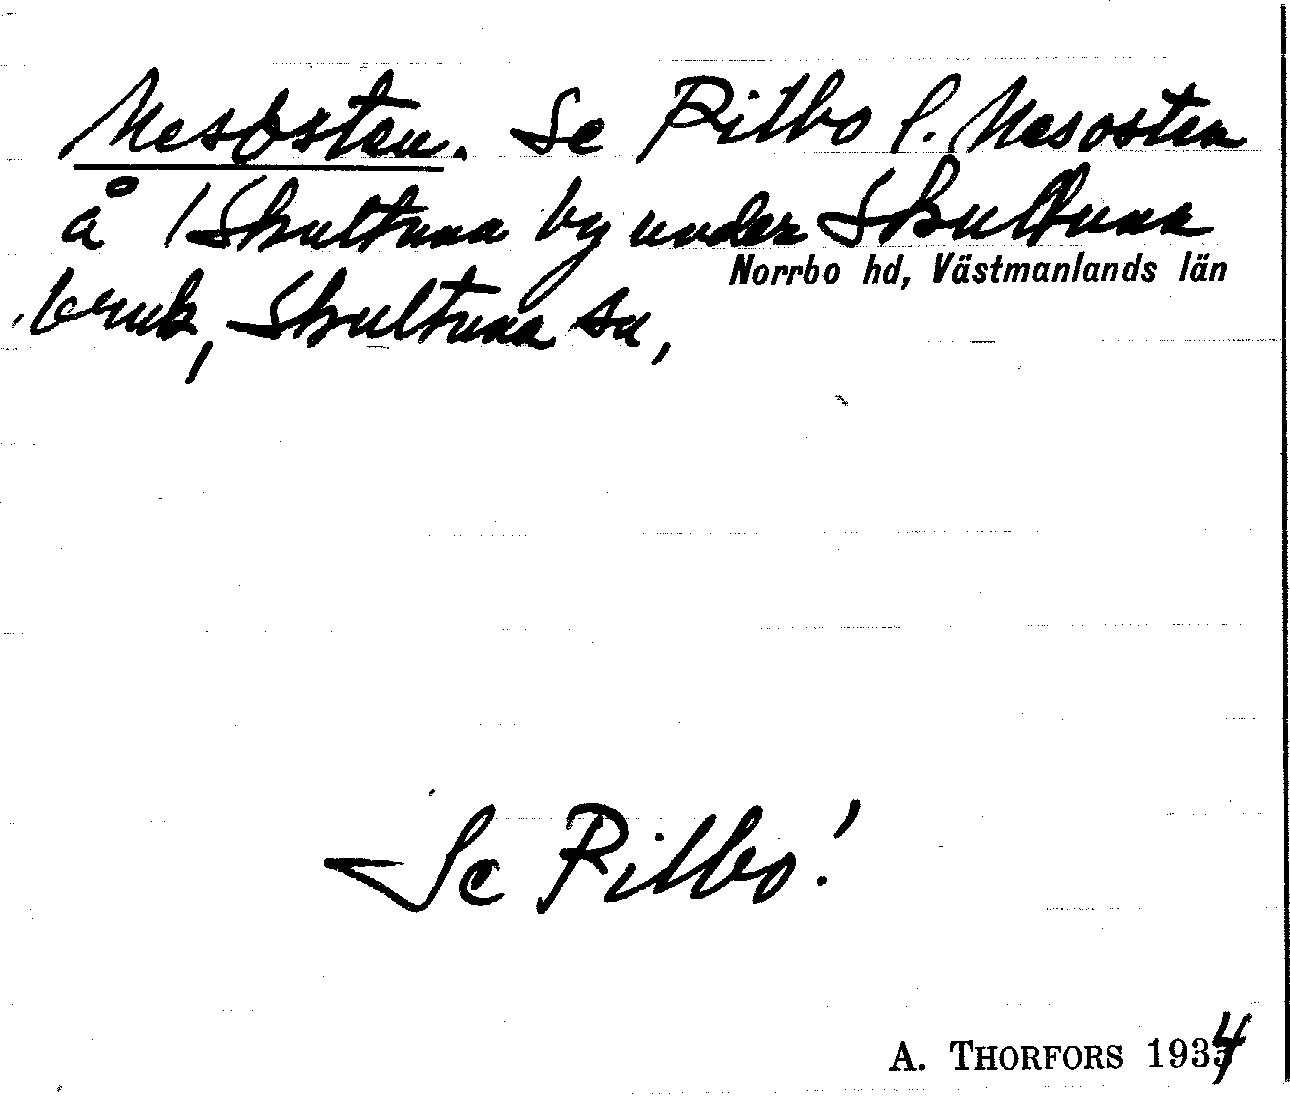 Mesosten. Se Ritbo l. Mesosten
å 1 Skultuna by under Skultuna
Norrbo hd, Västmanlands län
bruk, Skultuna sn,
Se Ritbo!
A. THORFORS 1934